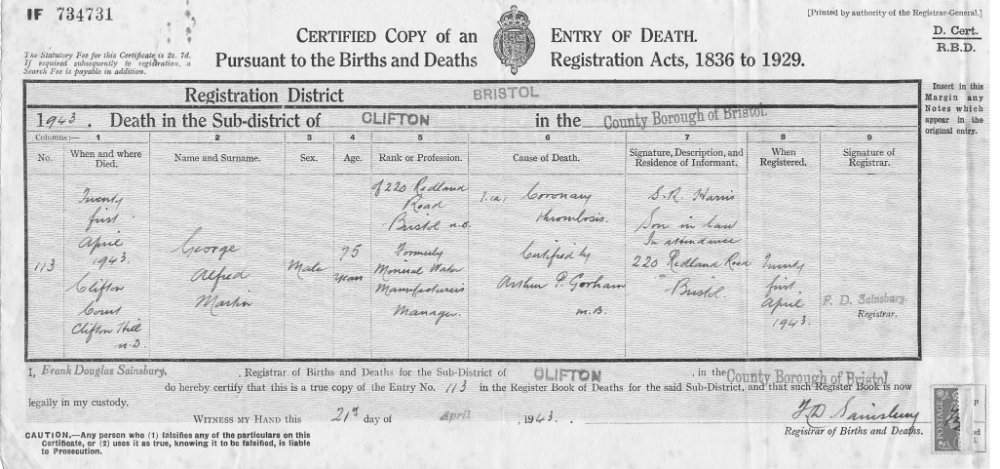 IF 734731
[Printed by authority of the Registrar-General.]
CERTIFIED COPY of an ENTRY OF DEATH.
Pursuant to the Births and Deaths Registration Acts, 1836 to 1929.
D. Cert.
R.B.D.
The Statutory Fee for this Certificate is 2s. 7d.
If required subsequently to registration, a
Search Fee is payable in addition.
Insert in this
Margin any
Notes which
appear in the
original entry.
Registration District BRISTOL
1943. Death in the Sub-district of CLIFTON in the County Borough of Bristol.
Columns:— 1 2 3 4 5 6 7 8 9
No.
When and where
Died.
Name and Surname.
Sex.
Age.
Rank or Profession.
Cause of Death.
Signature, Description, and
Residence of Informant.
When
Registered.
Signature of
Registrar.
113
Twenty
first
April
1943.
Clifton
Court
Clifton Hill
u.D.
George
Alfred
Martin
Male
75
Years
of 220 Redland
Road
Bristol u.D.
Formerly
Mineral Water
Manufacturers
Manager.
1.(a) Coronary
thrombosis.
Certified by
Arthur P. Gorham
M.B.
S.R. Harris
Son in law
In attendance
220 Redland Road
Bristol.
Twenty
first
April
1943.
F. D. Sainsbury.
Registrar.
I, Frank Douglas Sainsbury, Registrar of Births and Deaths for the Sub-District of CLIFTON, in the County Borough of Bristol
do hereby certify that this is a true copy of the Entry No. 113 in the Register Book of Deaths for the said Sub-District, and that such Register Book is now
legally in my custody.
WITNESS MY HAND this 21st day of April, 1943.
F D Sainsbury
Registrar of Births and Deaths.
CAUTION.—Any person who (1) falsifies any of the particulars on this
Certificate, or (2) uses it as true, knowing it to be falsified, is liable
to Prosecution.
POSTAGE